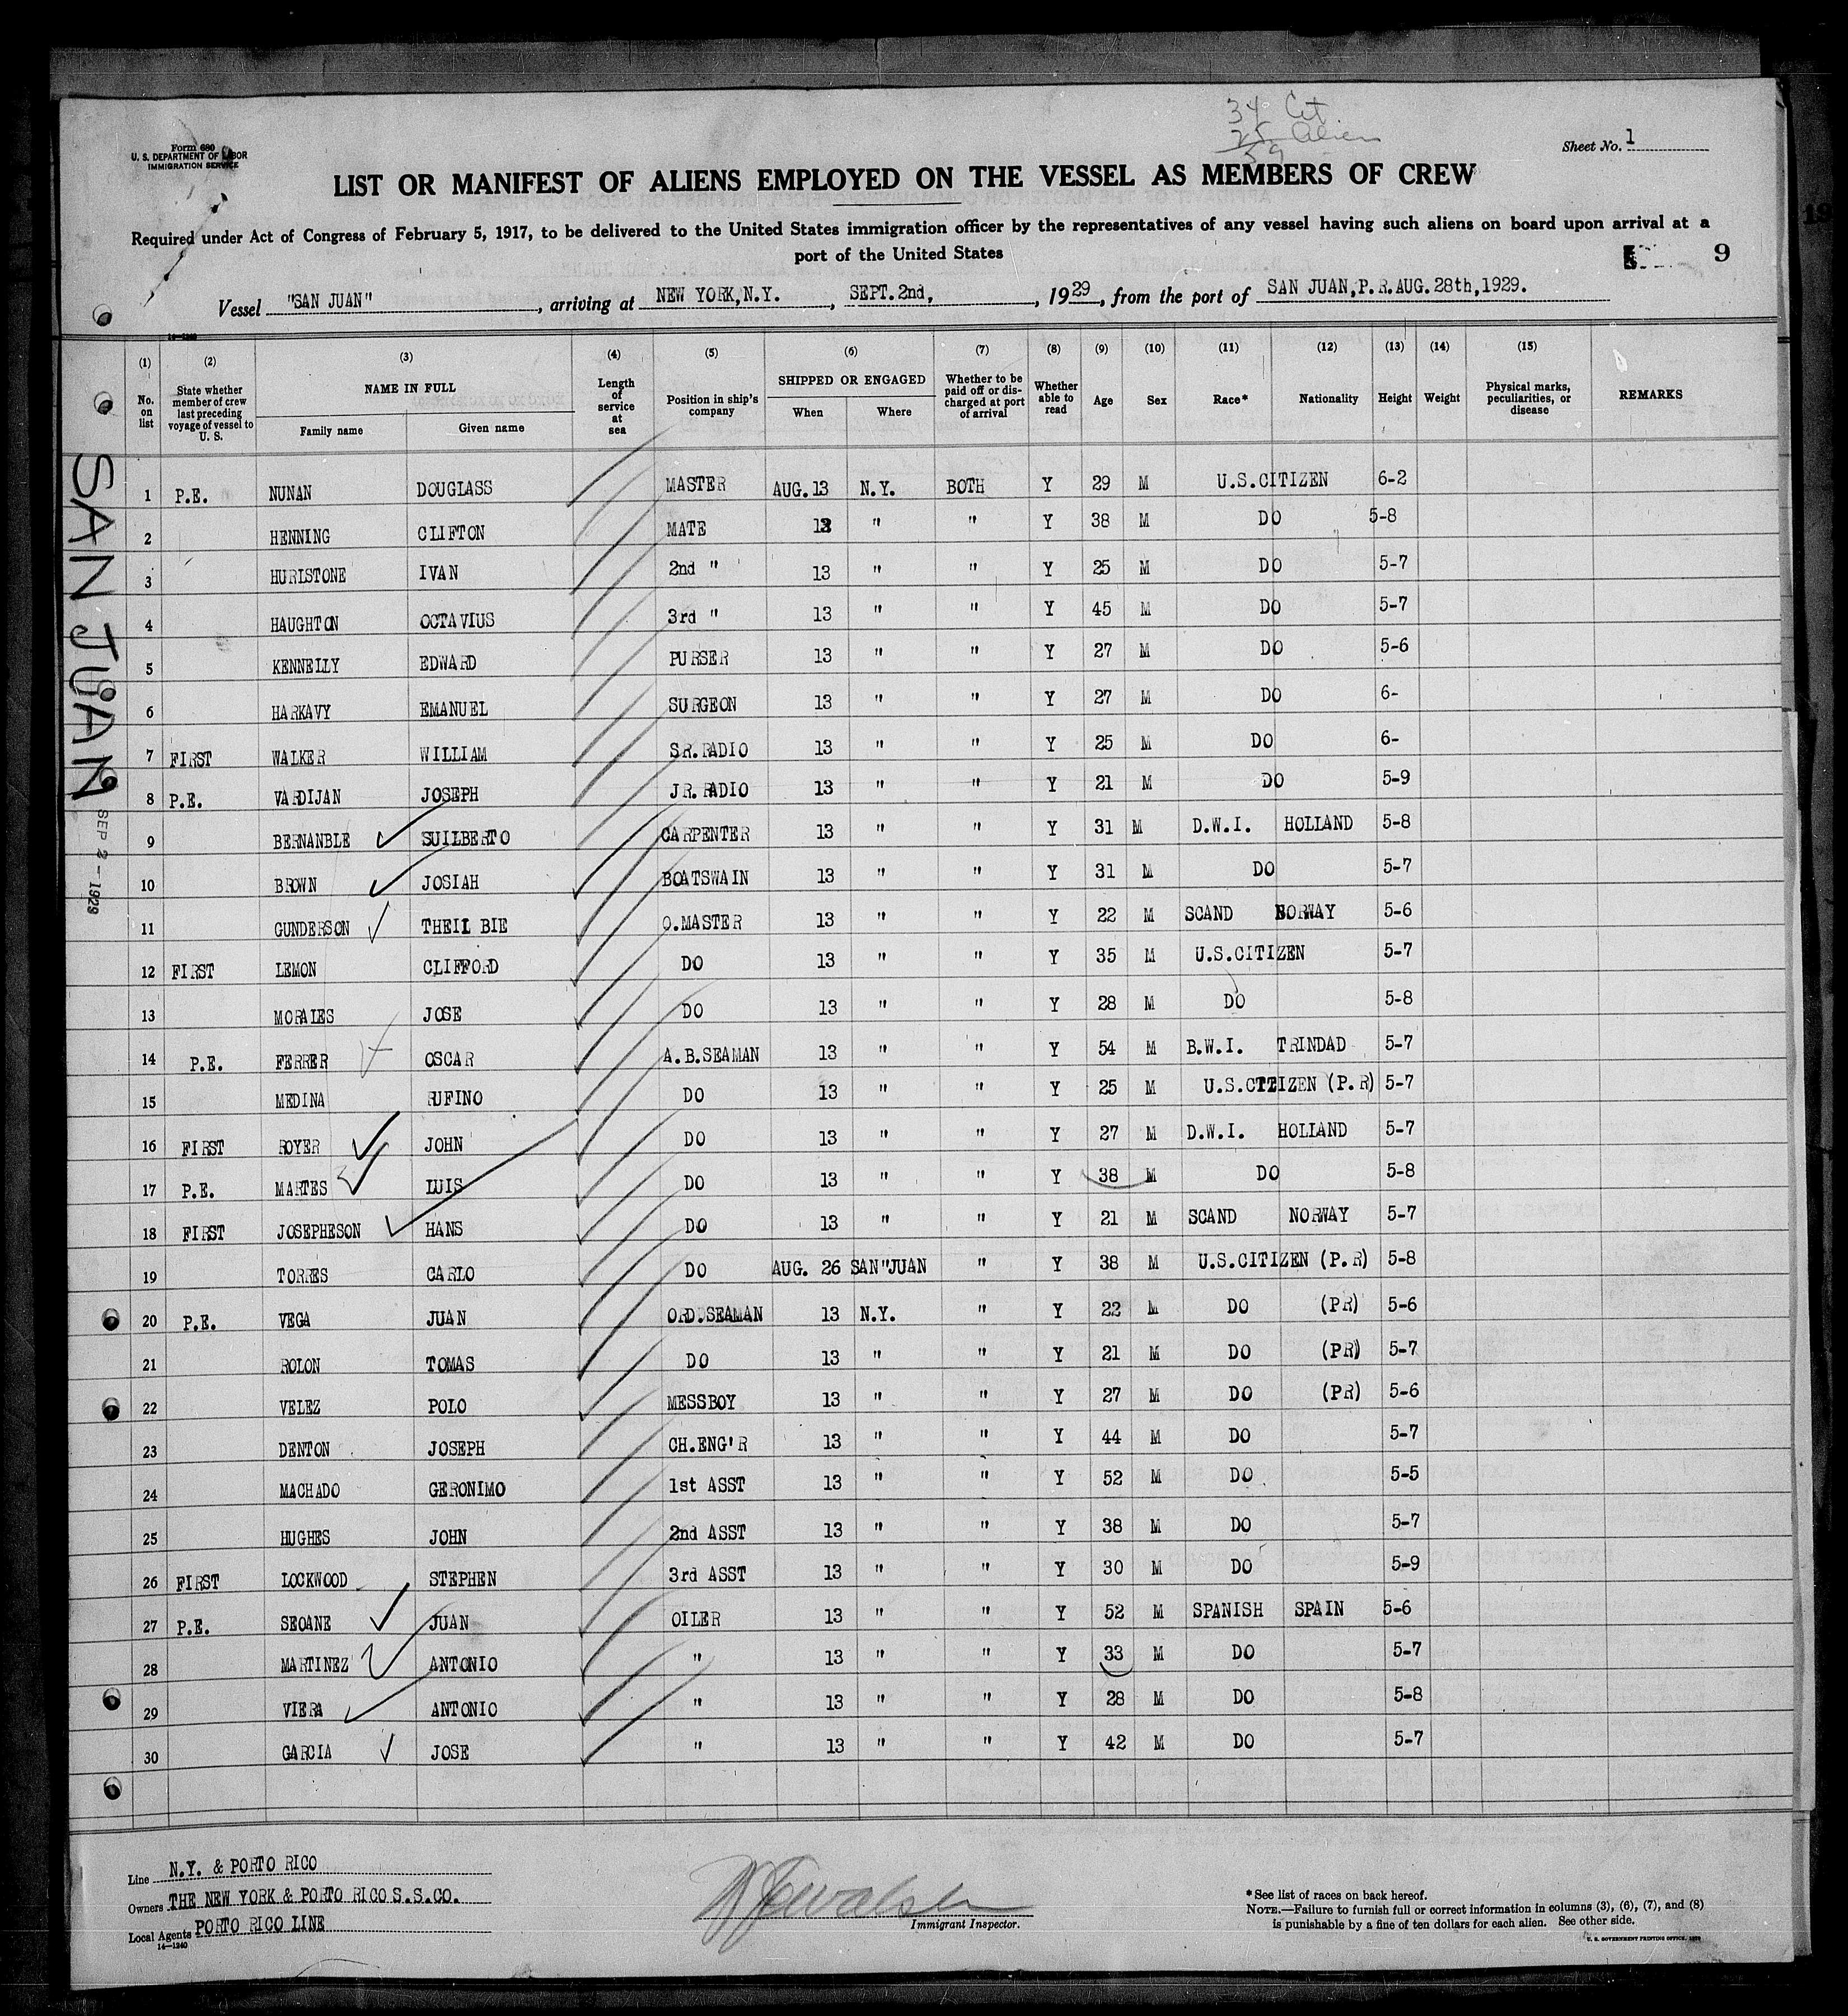 34 Cit
25 Alien
59
Form 680
U. S. DEPARTMENT OF LABOR
IMMIGRATION SERVICE
Sheet No. 1
LIST OR MANIFEST OF ALIENS EMPLOYED ON THE VESSEL AS MEMBERS OF CREW
Required under Act of Congress of February 5, 1917, to be delivered to the United States immigration officer by the representatives of any vessel having such aliens on board upon arrival at a
port of the United States
9
Vessel "SAN JUAN", arriving at NEW YORK, N.Y., SEPT. 2nd, , 1929, from the port of SAN JUAN, P.R. AUG. 28th, 1929.
14-1240
(1) (2) (3) (4) (5) (6) (7) (8) (9) (10) (11) (12) (13) (14) (15)
No. on list State whether member of crew last preceding voyage of vessel to U. S. NAME IN FULL Family name Given name Length of service at sea Position in ship's company SHIPPED OR ENGAGED When Where Whether to be paid off or discharged at port of arrival Whether able to read Age Sex Race* Nationality Height Weight Physical marks, peculiarities, or disease REMARKS
1 P.E. NUNAN DOUGLASS MASTER AUG. 13 N.Y. BOTH Y 29 M U.S.CITIZEN 6-2
2 HENNING CLIFTON MATE 13 " " Y 38 M DO 5-8
3 HURLSTONE IVAN 2nd " 13 " " Y 25 M DO 5-7
4 HAUGHTON OCTAVIUS 3rd " 13 " " Y 45 M DO 5-7
5 KENNELLY EDWARD PURSER 13 " " Y 27 M DO 5-6
6 HARKAVY EMANUEL SURGEON 13 " " Y 27 M DO 6-
7 FIRST WALKER WILLIAM SR.RADIO 13 " " Y 25 M DO 6-
8 P.E. VARDIJAN JOSEPH JR.RADIO 13 " " Y 21 M DO 5-9
9 BERNANBLE SUILBERTO CARPENTER 13 " " Y 31 M D.W.I. HOLLAND 5-8
10 BROWN JOSIAH BOATSWAIN 13 " " Y 31 M DO 5-7
11 GUNDERSON THEIL BIE Q.MASTER 13 " " Y 22 M SCAND NORWAY 5-6
12 FIRST LEMON CLIFFORD DO 13 " " Y 35 M U.S.CITIZEN 5-7
13 MORALES JOSE DO 13 " " Y 28 M DO 5-8
14 P.E. FERRER OSCAR A.B.SEAMAN 13 " " Y 54 M B.W.I. TRINDAD 5-7
15 MEDINA RUFINO DO 13 " " Y 25 M U.S.CITIZEN (P.R) 5-7
16 FIRST ROYER JOHN DO 13 " " Y 27 M D.W.I. HOLLAND 5-7
17 P.E. MARTES LUIS DO 13 " " Y 38 M DO 5-8
18 FIRST JOSEPHESON HANS DO 13 " " Y 21 M SCAND NORWAY 5-7
19 TORRES CARLO DO AUG. 26 SAN"JUAN " Y 38 M U.S.CITIZEN (P.R) 5-8
20 P.E. VEGA JUAN ORD.SEAMAN 13 N.Y. " Y 22 M DO (PR) 5-6
21 ROLON TOMAS DO 13 " " Y 21 M DO (PR) 5-7
22 VELEZ POLO MESSBOY 13 " " Y 27 M DO (PR) 5-6
23 DENTON JOSEPH CH.ENG'R 13 " " Y 44 M DO 5-7
24 MACHADO GERONIMO 1st ASST 13 " " Y 52 M DO 5-5
25 HUGHES JOHN 2nd ASST 13 " " Y 38 M DO 5-7
26 FIRST LOCKWOOD STEPHEN 3rd ASST 13 " " Y 30 M DO 5-9
27 P.E. SEOANE JUAN OILER 13 " " Y 52 M SPANISH SPAIN 5-6
28 MARTINEZ ANTONIO " 13 " " Y 33 M DO 5-7
29 VIERA ANTONIO " 13 " " Y 28 M DO 5-8
30 GARCIA JOSE " 13 " " Y 42 M DO 5-7
SAN JUAN
SEP 2 - 1929
Line N.Y. & PORTO RICO
Owners THE NEW YORK & PORTO RICO S.S.CO.
Local Agents PORTO RICO LINE
14-1240
Immigrant Inspector.
*See list of races on back hereof.
NOTE.—Failure to furnish full or correct information in columns (3), (6), (7), and (8)
is punishable by a fine of ten dollars for each alien. See other side.
U. S. GOVERNMENT PRINTING OFFICE